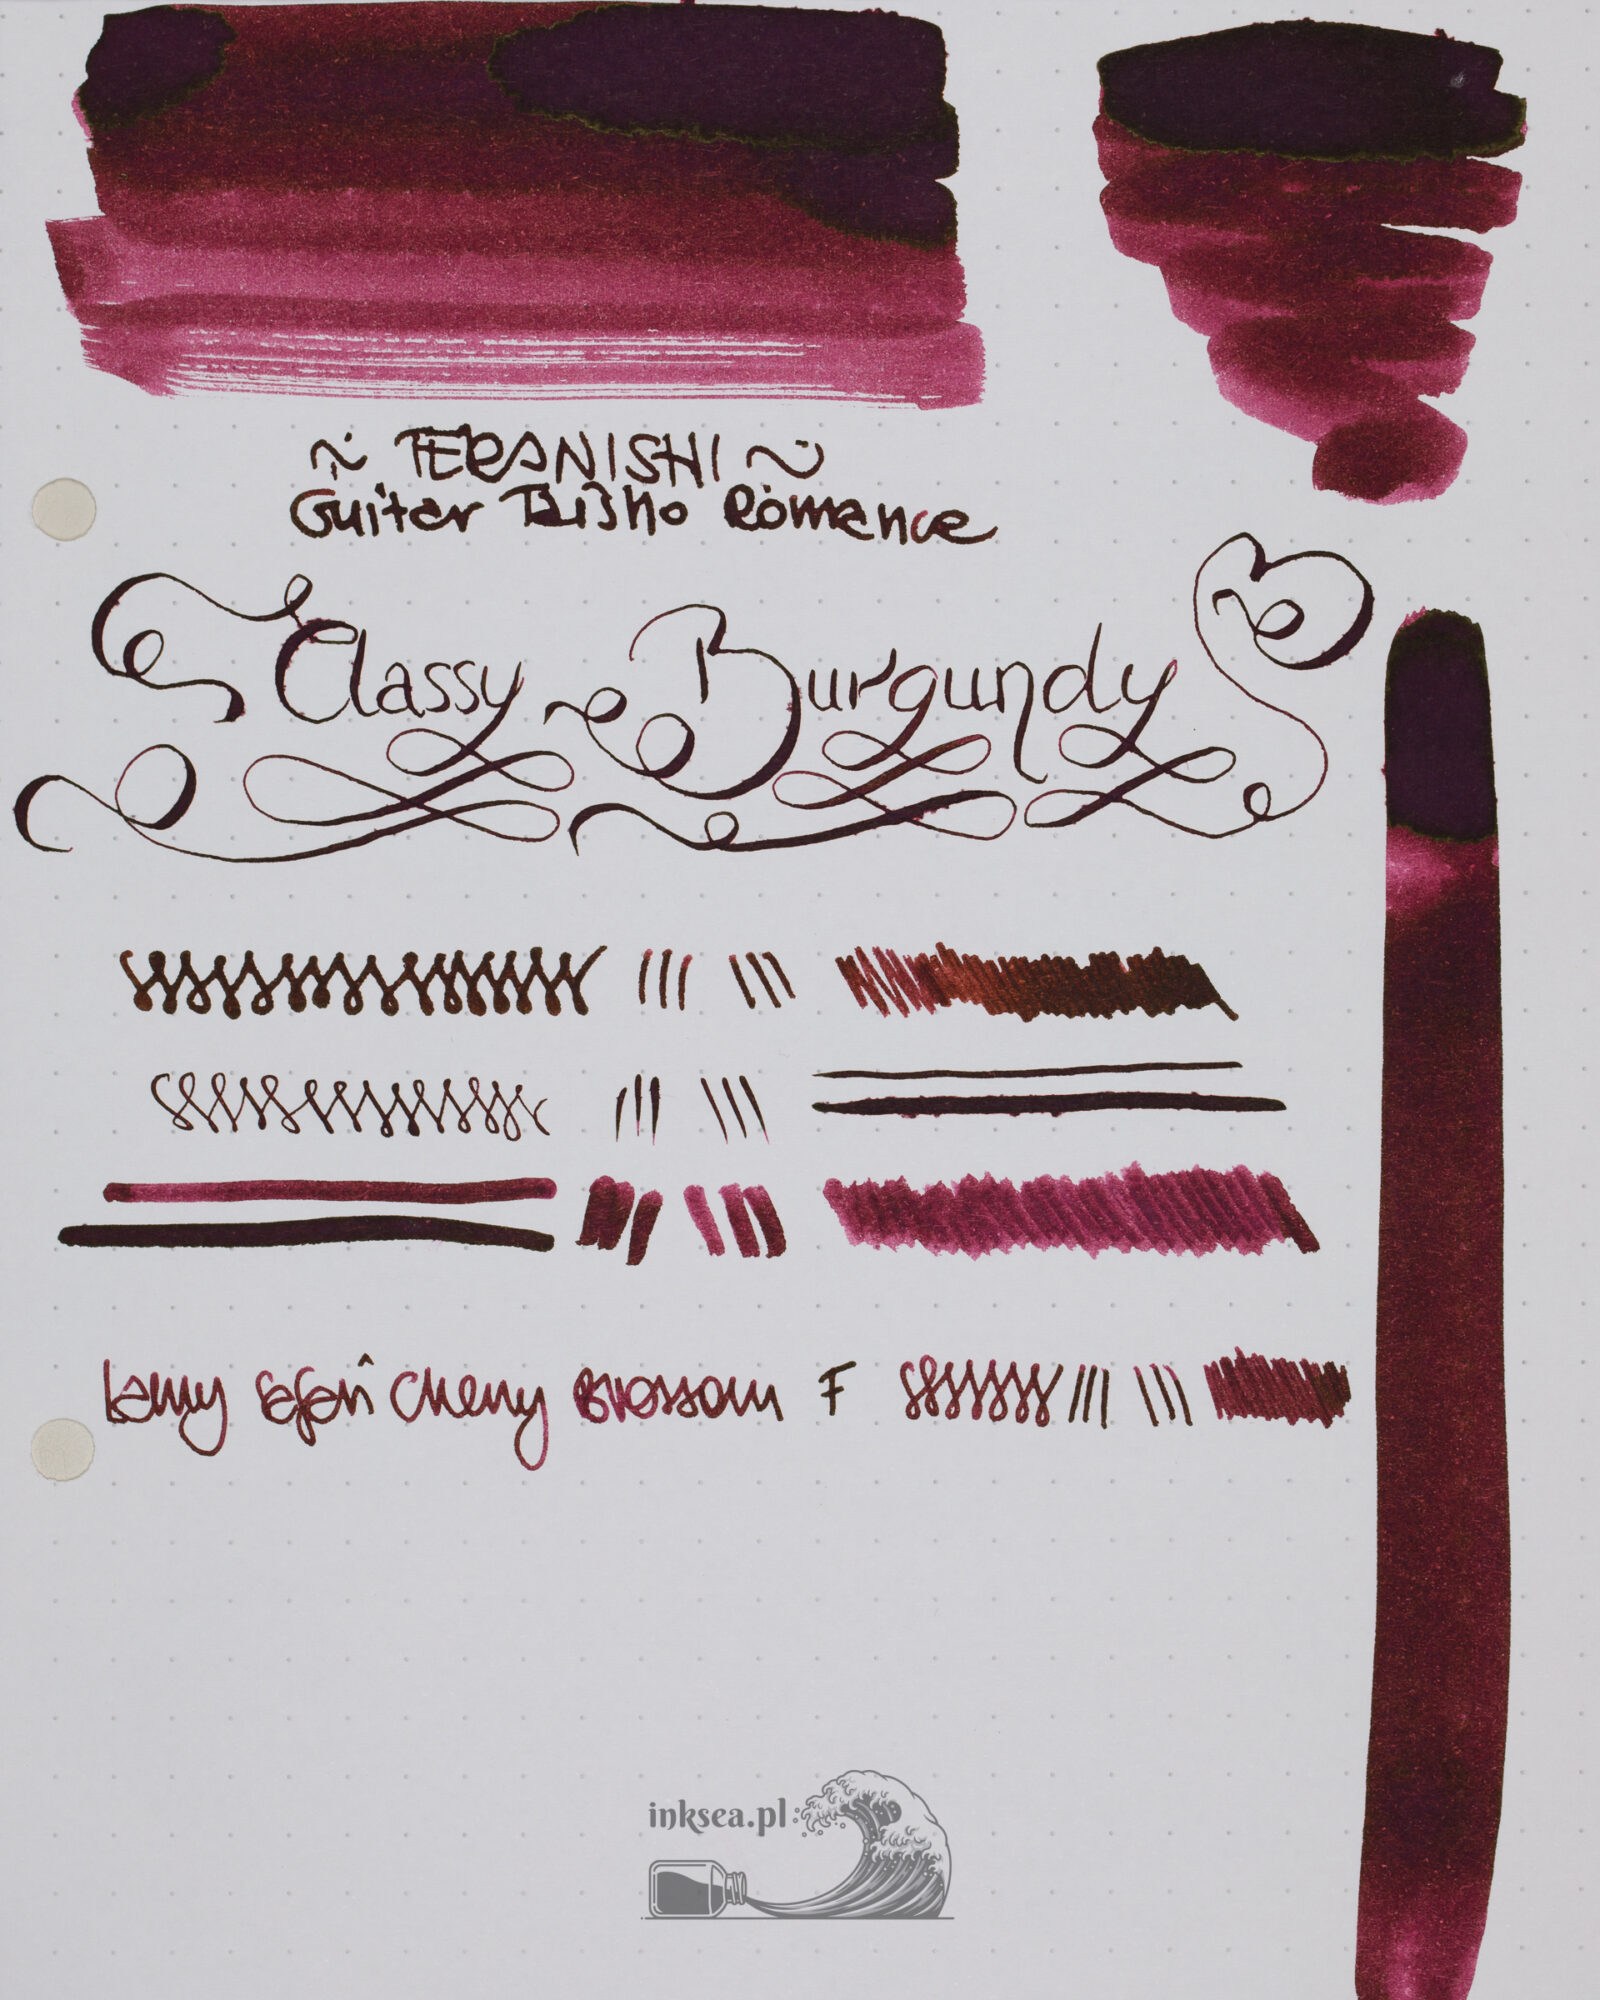 ~ TERANISHI ~
Guitar Taisho Romance
Classy Burgundy
Lamy Safari Cherry Blossom F
inksea.pl